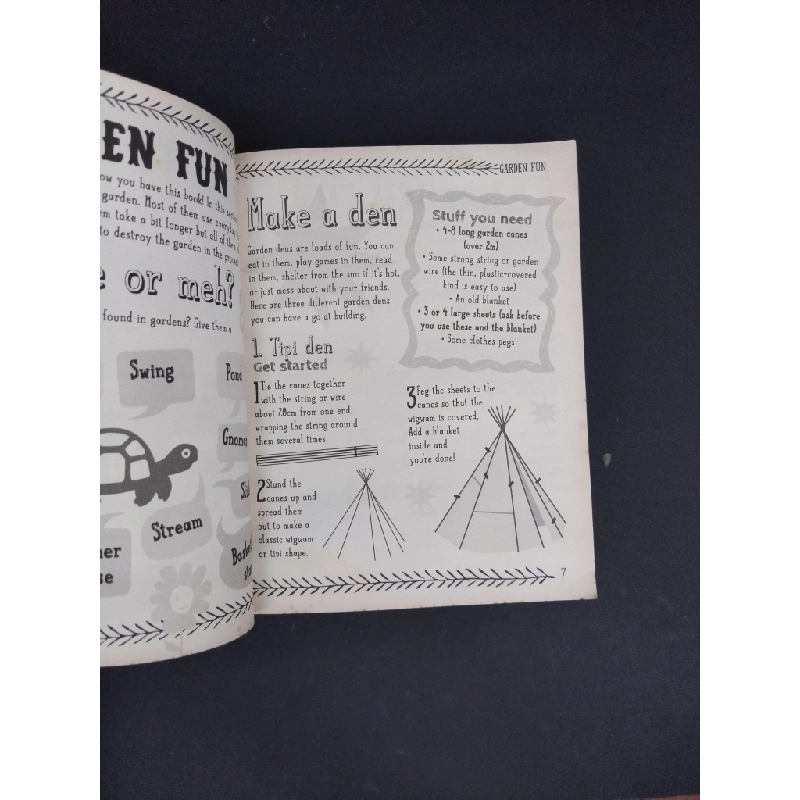 EN FUN
ow you have this book! In this
garden. Most of them use everyday
em take a bit longer but all of
to destroy the garden in the
e or meh?
found in gardens? Give them a
Swing
Pon
Gnom
Stream
her
se
Baske
GARDEN FUN
Make a den
Garden dens are loads of fun. You can
eat in them, play games in them, read
in them, shelter from the sun if it's hot,
or just mess about with your friends.
Here are three different garden dens
you can have a go at building.
Stuff you need
• 4-8 long garden canes
(over 2m)
• Some strong string or garden
wire (the thin, plastic-covered
kind is easy to use)
• An old blanket
• 3 or 4 large sheets (ask before
you use these and the blanket)
• Some clothes pegs
1. Tipi den
Get started
1 Tie the canes together
with the string or wire
about 20cm from one end,
wrapping the string around
them several times.
2 Stand the
canes up and
spread them
out to make a
classic wigwam
or tipi shape.
3 Peg the sheets to the
canes so that the
wigwam is covered.
Add a blanket
inside and
you're done!
7